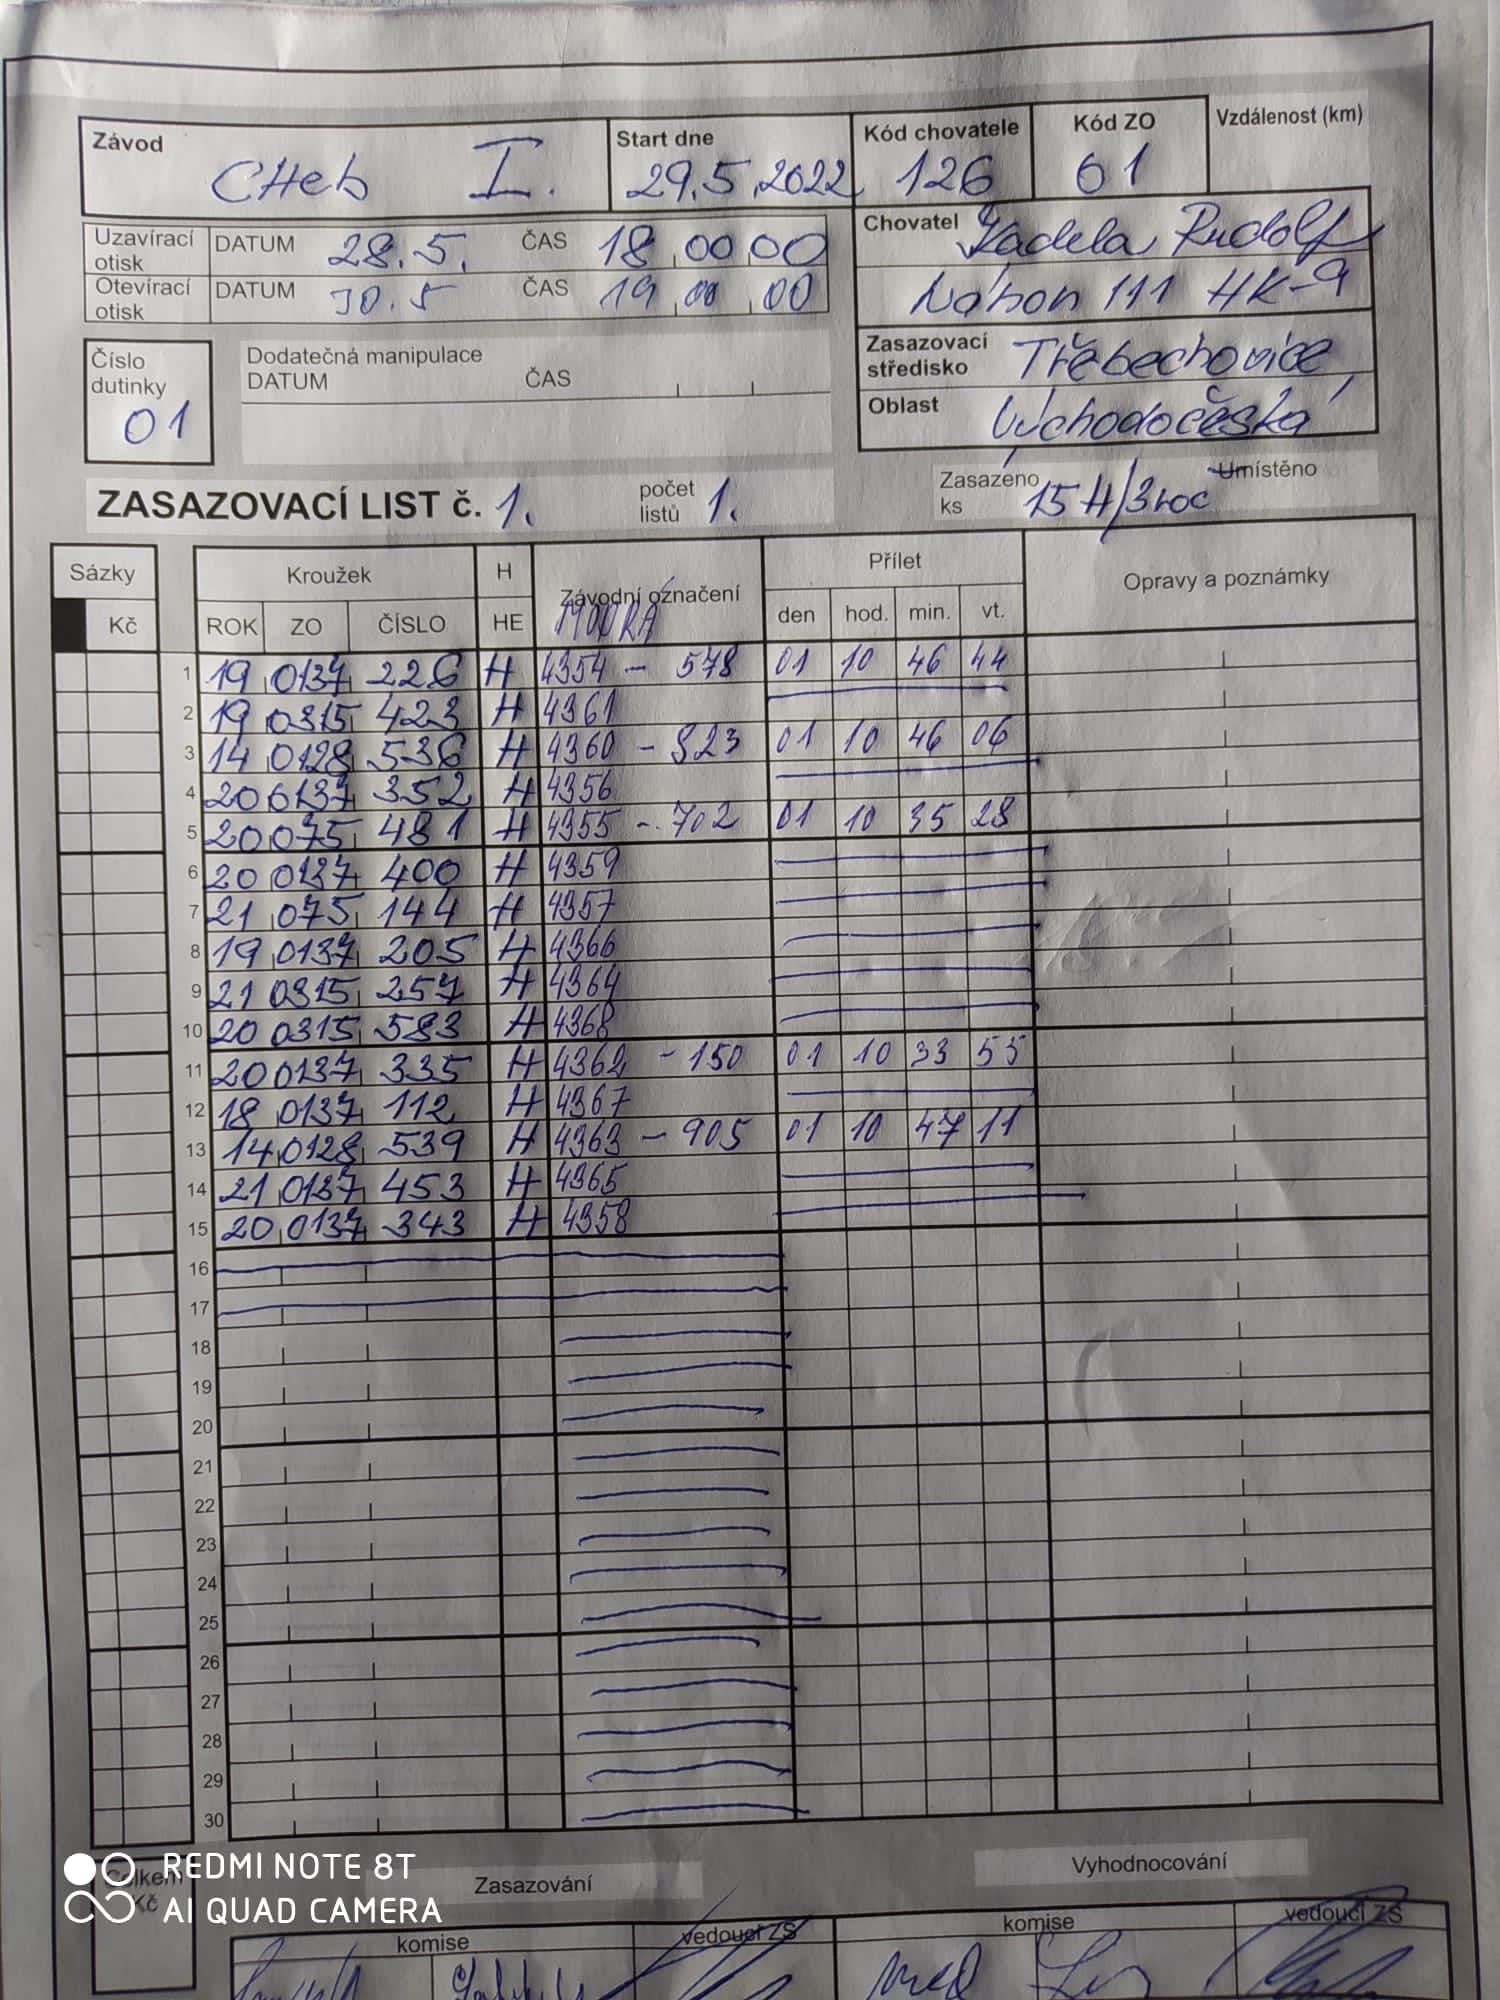 Závod CHeb I. Start dne 29.5.2022 Kód chovatele 126 Kód ZO 61 Vzdálenost (km)
Uzavírací otisk DATUM 28.5. ČAS 18 00 00
Otevírací otisk DATUM 30.5 ČAS 19 00 00
Chovatel Rudolf
111 HK-9
Zasazovací středisko Třebechovice
Oblast Východočeská
Číslo dutinky 01
Dodatečná manipulace
DATUM ČAS
ZASAZOVACÍ LIST č. 1. počet listů 1. Zasazeno ks 15 H/3roc Umístěno
Sázky Kroužek H Závodní označení Přílet Opravy a poznámky
Kč ROK ZO ČÍSLO HE den hod. min. vt.
1 19 0137 226 H 4354 - 578 01 10 46 44
2 19 0315 423 H 4361
3 14 0128 536 H 4360 - 823 01 10 46 06
4 20 0137 352 H 4356
5 20 075 481 H 4355 - 702 01 10 35 28
6 20 0137 400 H 4359
7 21 075 144 H 4357
8 19 0137 205 H 4366
9 21 0315 257 H 4364
10 20 0315 583 H 4368
11 20 0137 335 H 4362 - 150 01 10 33 55
12 18 0137 112 H 4367
13 14 0128 539 H 4363 - 905 01 10 47 11
14 21 0137 453 H 4365
15 20 0137 343 H 4358
16
17
18
19
20
21
22
23
24
25
26
27
28
29
30
Celkem Kč
Zasazování Vyhodnocování
komise vedoucí ZS komise vedoucí ZS
REDMI NOTE 8T
AI QUAD CAMERA